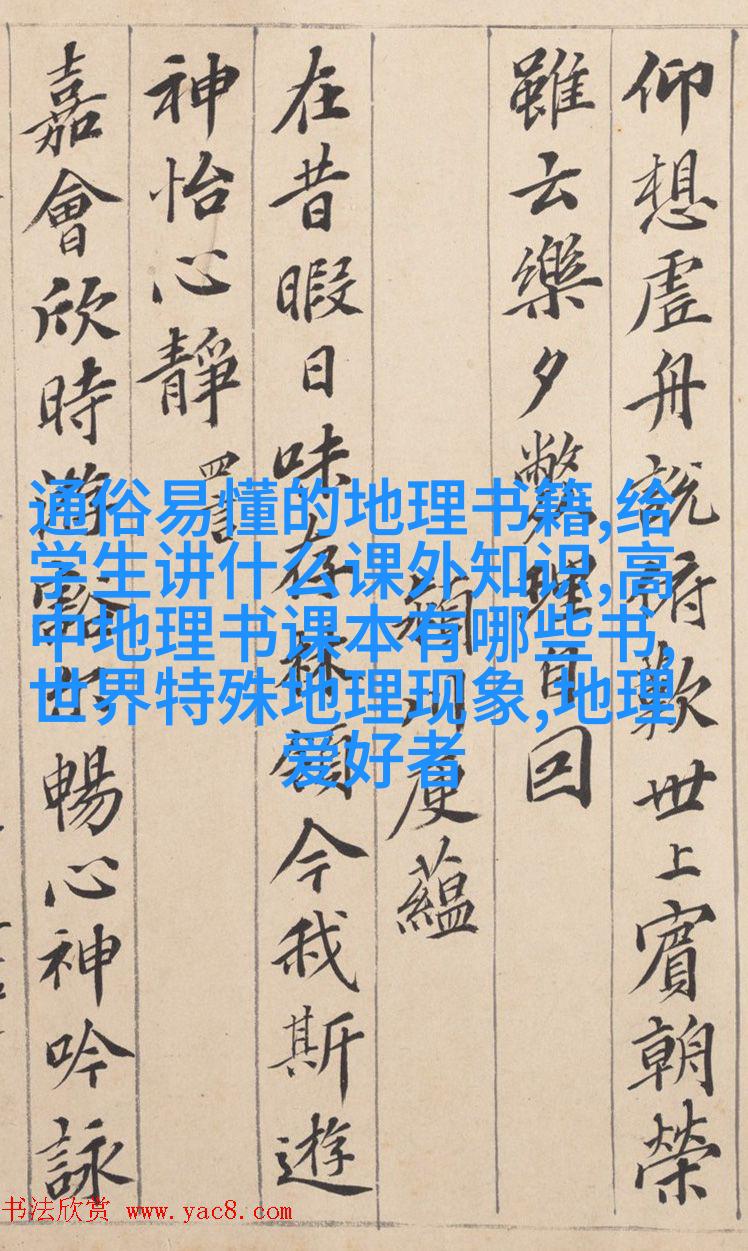 仰想虛舟說俯歎世上賓朝榮
雖云樂夕弊理自回
潁川庾蘊
在昔暇日味存林嶺今我斯遊
神怡心靜
嘉會欣時遊豁尒暢心神吟詠
通俗易懂的地理书籍,给
学生讲什么课外知识,高
中地理书课本有哪些书,
世界特殊地理现象,地理
爱好者
书法欣赏 www.yac8.com